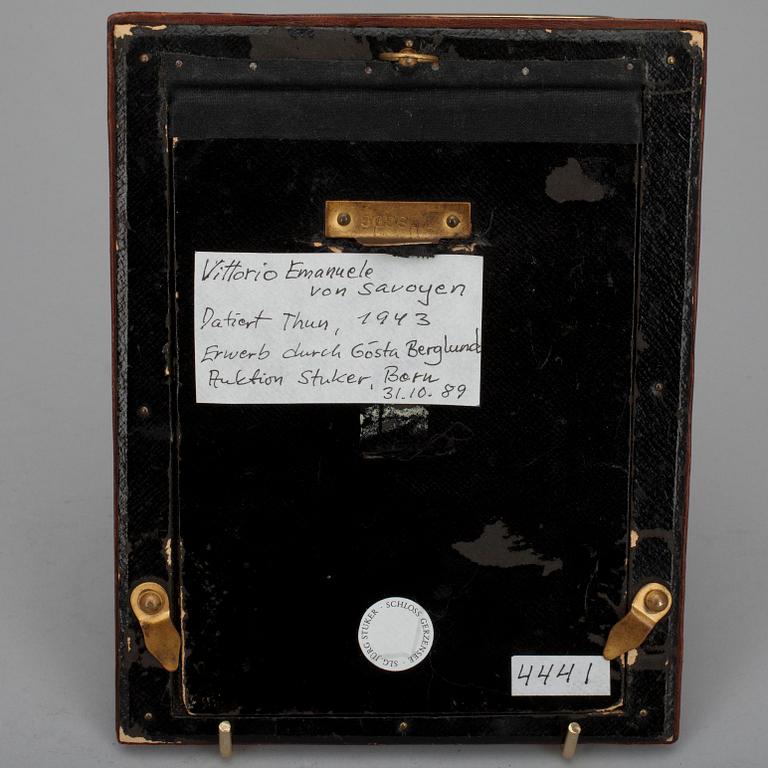 Vittorio Emanuele
von Savoyen
Datiert Thun, 1943
Erwerb durch Gösta Berglund
Auktion Stuker, Bern
31.10.89
SLG. JÜRG STUKER · SCHLOSS GERZENSEE ·
4441